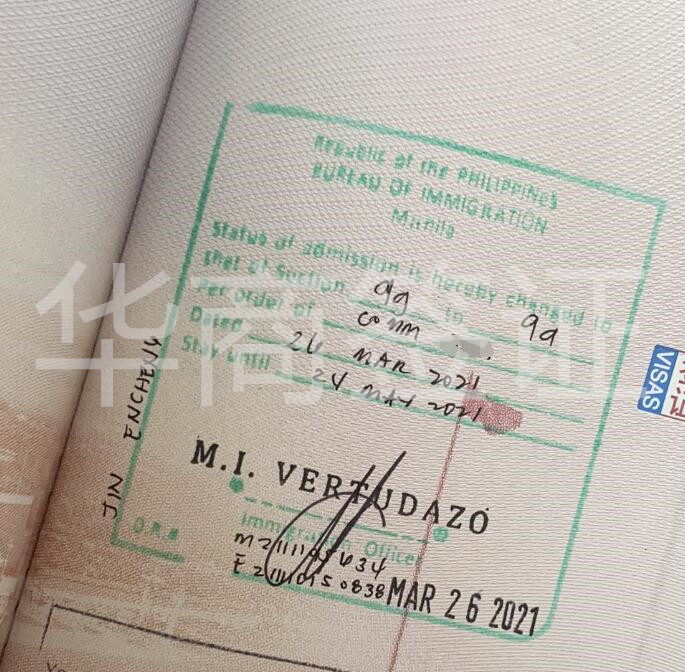 Republic of the PHILIPPINES
BUREAU OF IMMIGRATION
Manila
Status of admission is hereby changed to
that of Section 9g to 9a
Per order of comm
Dated 26 MAR 2021
Stay Until 24 MAY 2021
JIN ENCHENG
M.I. VERTUDAZO
Immigration Officer
O.R.#
MAR 26 2021
华商签证
VISAS